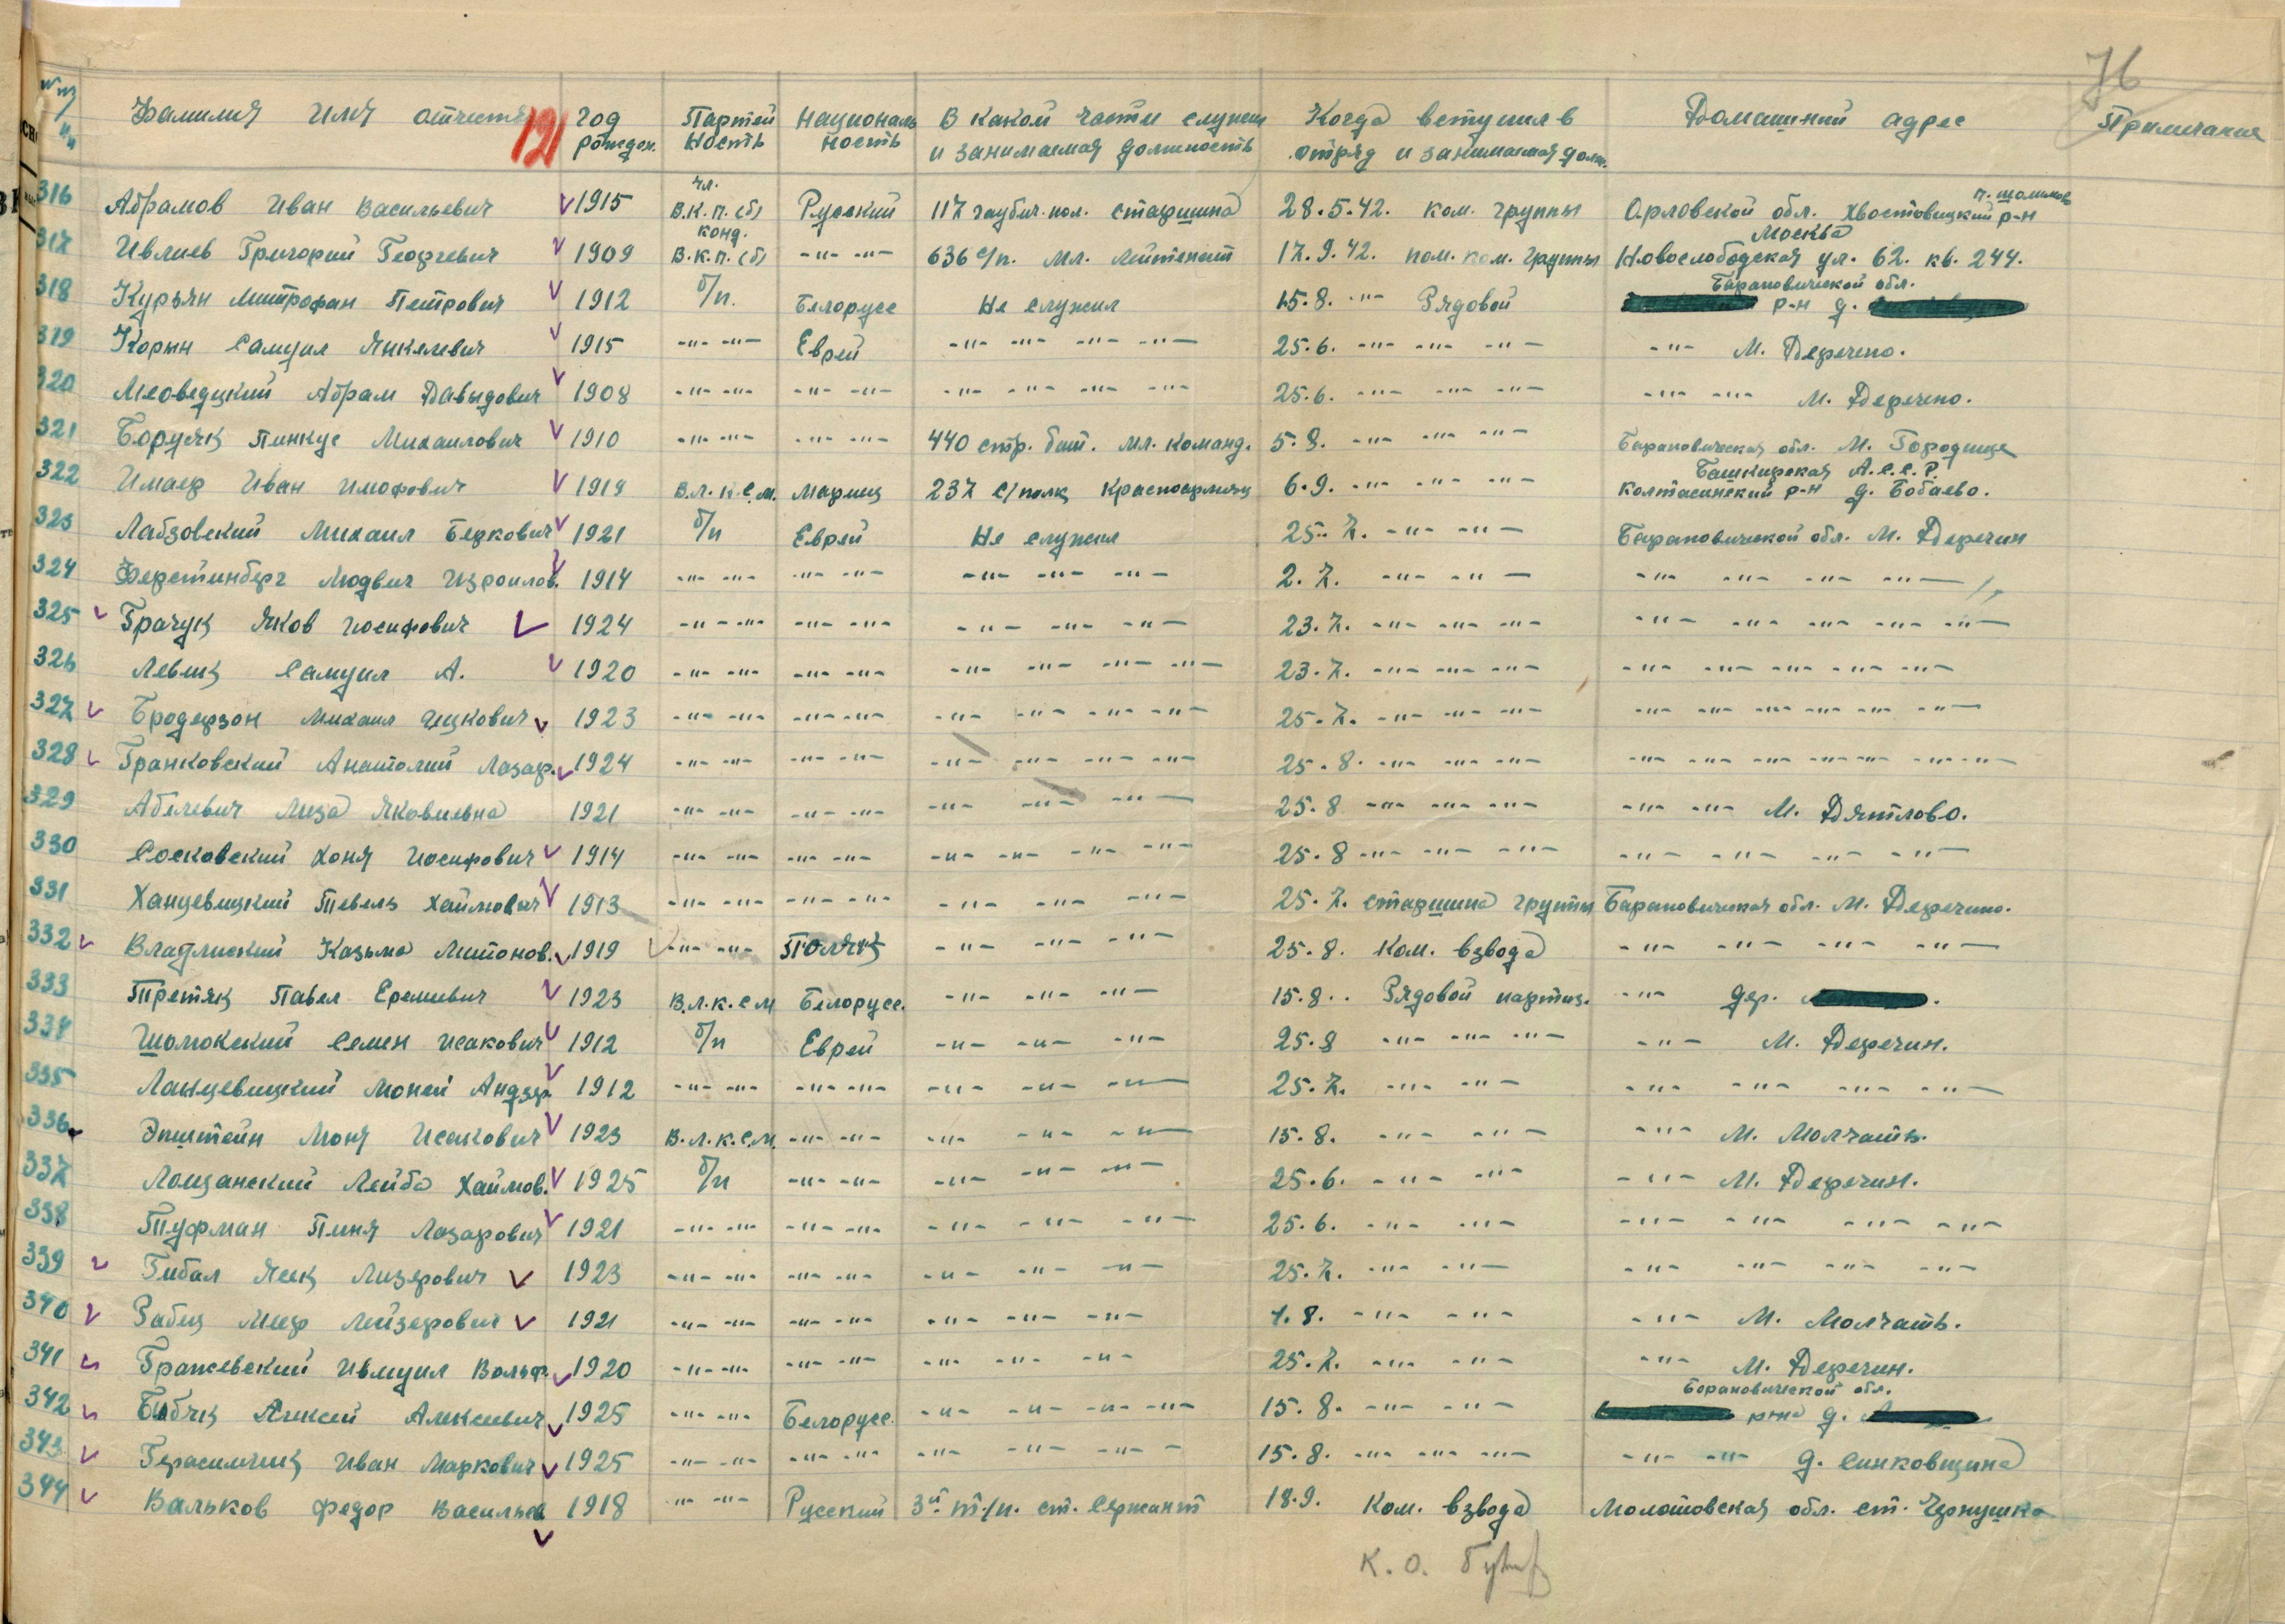 76
№№ п/п Фамилия Имя отчество 121 Год рожден. Партейность Национальность В какой части служил и занимаемая должность Когда вступил в отряд и занимаемая долж. Домашний адрес Примечание
316 Абрамов Иван Васильевич 1915 чл. В.К.П.(б) Русский 117 гаубич. пол. старшина 28.5.42. ком. группы Орловской обл. Хвостовицкий р-н
317 Ивлиев Григорий Георгевич 1909 конд. В.К.П.(б) -"- -"- 636 с/п. мл. лейтенант 17.9.42. пом. ком. группы Москва Новослободская ул. 62. кв. 244.
318 Курьян Митрофан Петрович 1912 б/п. Белорусс Не служил 15.8. -"- Рядовой Барановической обл. р-н д.
319 Корын Самуил Янкелевич 1915 -"- -"- Еврей -"- -"- -"- -"- 25.6. -"- -"- -"- -"- М. Деречено.
320 Меоведцкий Абрам Давыдович 1908 -"- -"- -"- -"- -"- -"- -"- -"- 25.6. -"- -"- -"- -"- -"- М. Деречено.
321 Боруяк Пинкус Михаилович 1910 -"- -"- -"- -"- 440 стр. бат. мл. команд. 5.8. -"- -"- -"- Барановическая обл. М. Городище
322 Имаер Иван Имофович 1919 В.Л.К.С.М. Мариец 237 с/полк Красноармеец 6.9. -"- -"- -"- Башкирская А.С.С.Р. Колтасинский р-н д. Бобаево.
323 Лабзовский Михаил Беркович 1921 б/п Еврей Не служил 25.7. -"- -"- Барановической обл. М. Деречин
324 Ферстинберг Людвиг Изроилов. 1914 -"- -"- -"- -"- -"- -"- -"- 2.7. -"- -"- -"- -"- -"- -"-
325 Грачук Яков Иосифович 1924 -"- -"- -"- -"- -"- -"- -"- 23.7. -"- -"- -"- -"- -"- -"- -"- -"-
326 Левик Самуил А. 1920 -"- -"- -"- -"- -"- -"- -"- -"- 23.7. -"- -"- -"- -"- -"- -"- -"- -"-
327 Бродерзон Михаил Ицкович 1923 -"- -"- -"- -"- -"- -"- -"- -"- 25.7. -"- -"- -"- -"- -"- -"- -"- -"- -"-
328 Гранковский Анатолий Лазар. 1924 -"- -"- -"- -"- -"- -"- -"- -"- 25.8. -"- -"- -"- -"- -"- -"- -"- -"- -"- -"-
329 Абелевич Лиза Яковлевна 1921 -"- -"- -"- -"- -"- -"- -"- 25.8 -"- -"- -"- -"- -"- М. Дятлово.
330 Сосковский Хоня Иосифович 1914 -"- -"- -"- -"- -"- -"- -"- -"- 25.8 -"- -"- -"- -"- -"- -"- -"-
331 Ханцевицкий Тевель Хаймович 1913 -"- -"- -"- -"- -"- -"- -"- 25.7. старшина группы Барановическая обл. М. Деречино.
332 Владлиский Казьма Митонов. 1919 -"- -"- Поляк -"- -"- -"- 25.8. Ком. взвода -"- -"- -"- -"-
333 Третяк Павел Еремиевич 1923 В.Л.К.С.М Белорусс. -"- -"- -"- 15.8.. Рядовой партиз. -"- дер.
334 Шолюкский Семен Исакович 1912 б/п Еврей -"- -"- -"- 25.8 -"- -"- -"- -"- М. Деречин.
335 Ланцевицкий Моней Андзр. 1912 -"- -"- -"- -"- -"- -"- -"- 25.7. -"- -"- -"- -"- -"- -"-
336 Эпштейн Моня Исакович 1923 В.Л.К.С.М. -"- -"- -"- -"- -"- 15.8. -"- -"- -"- М. Молчать.
337 Лощанский Лейба Хаймов. 1925 б/п -"- -"- -"- -"- -"- 25.6. -"- -"- -"- М. Деречин.
338 Туфман Пиня Лазарович 1921 -"- -"- -"- -"- -"- -"- -"- 25.6. -"- -"- -"- -"- -"- -"-
339 Гибал Ясек Лизерович 1923 -"- -"- -"- -"- -"- -"- -"- 25.7. -"- -"- -"- -"- -"- -"-
340 Рабец Меер Лейзерович 1921 -"- -"- -"- -"- -"- -"- -"- 4.8. -"- -"- -"- М. Молчать.
341 Гражевский Ивмуил Вольф. 1920 -"- -"- -"- -"- -"- -"- -"- 25.7. -"- -"- -"- М. Деречин.
342 Бибчк Алексей Алексеевич 1925 -"- -"- Белорусс. -"- -"- -"- -"- 15.8. -"- -"- Барановической обл. р-на д.
343 Герасимчик Иван Маркович 1925 -"- -"- -"- -"- -"- -"- -"- - 15.8. -"- -"- -"- -"- -"- д. Синковщина
344 Вальков Федор Васильев 1918 -"- -"- Русский 3й т/п. ст. Сержант 18.9. Ком. взвода Молотовская обл. ст. Чернушка
К.О.